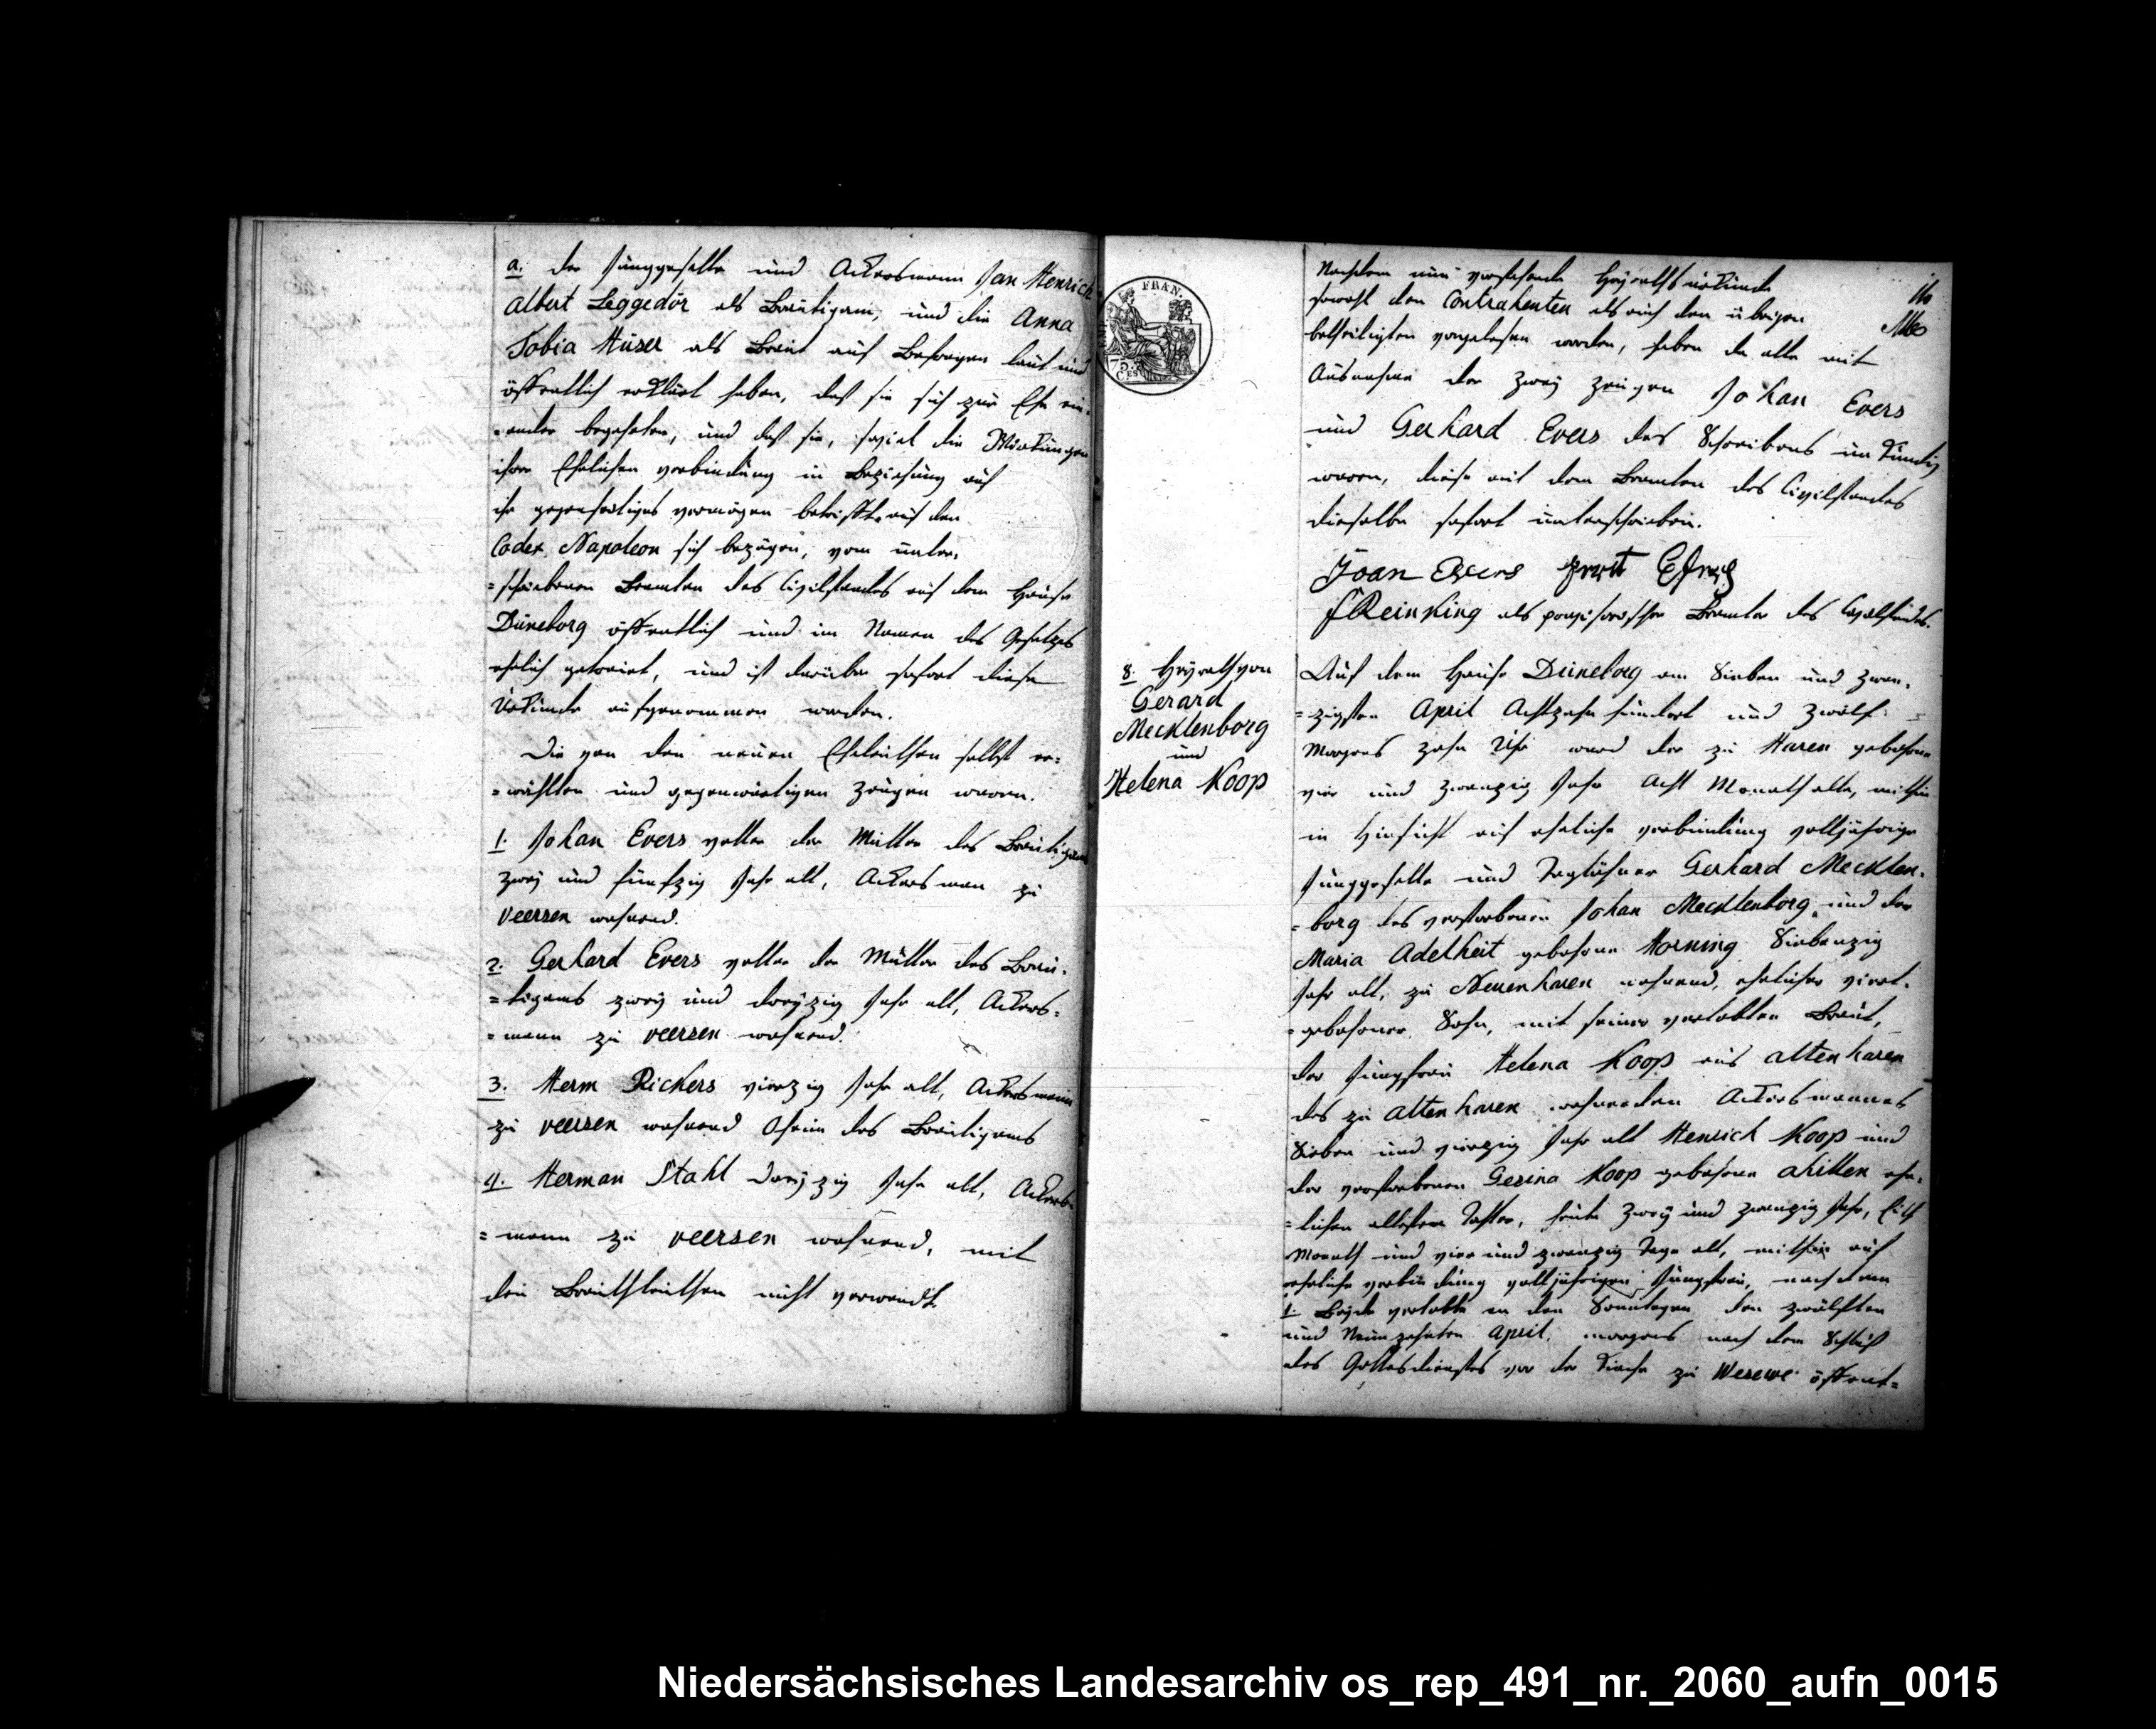 a. der Junggeselle und Ackersmann Jan Henrich
Albert Leggedör als Bräutigam, und die Anna
Tobia Hüser als Braut auf Befragen laut und
öffentlich erklärt haben, daß sie sich zur Ehe ein-
=ander begehrten, und daß sie, soviel die Wirkungen
ihrer Ehelichen verbindung in Beziehung auf
ihr gegenseitiges vermögen betrifft, auf den
Codex Napoleon sich bezögen, vom unter-
=schriebenen Beamten des Civilstandes auf dem Hause
Düneborg öffentlich und im Namen des Gesetzes
ehelich getrauet, und ist darüber sofort diese
Urkunde aufgenommen worden.
Die von den neuen Eheleuthen selbst er=
=wählten und gegenwärtigen Zeugen waren.
1. Johan Evers vetter der Mutter des Bräutigams
zwey und fünfzig Jahr alt, Ackersman zu
veersen wohnend.
2. Gerhard Evers vetter der Mutter des Bräu-
=tigams zwey und dreyzig Jahr alt, Ackers=
=mann zu veersen wohnend.
3. Herm Rickers vierzig Jahr alt, Ackersmann
zu veersen wohnend Oheim des Bräutigams
4. Herman Stahl dreyzig Jahr alt, Ackers-
=mann zu veersen wohnend, mit
den Brauthleuthen nicht verwandt
FRAN.
75. C.
16
Nachdem nun vorstehende Heyrathsurkunde
sowohl den Contrahenten als auch den übrigen
betheiligten vorgelesen worden, haben da alle mit
Ausnahme der zwey Zeugen Johan Evers
und Gerhard Evers des Schreibens unkundig
waren, diese mit dem Beamten des Civilstandes
dieselbe sofort unterschrieben.
Joan Evers
Reinking als provisorischer Beamter des Civilstandes.
8. Heyrath von
Gerard
Mecklenborg
und
Helena Koop
Auf dem Hause Düneborg am Sieben und zwan-
=zigsten April Achtzehn hundert und zwölf
Morgens zehn Uhr ward der zu Haren gebohrne
vier und zwanzig Jahr Acht Monath alte, mithin
in Hinsicht auf eheliche verbindung volljährige
Junggeselle und Taglöhner Gerhard Mecklen-
=borg des verstorbenen Johan Mecklenborg, und der
Maria Adelheit gebohrne Horning Siebenzig
Jahr alt, zu Neuenharen wohnend, ehelicher viert-
=gebohrner Sohn, mit seiner verlobten Braut,
der Jungfrau Helena Koop aus altenharen
des zu altenharen wohnenden Ackersmannes
Sieben und vierzig Jahr alt Henrich Koop und
der verstorbenen Gesina Koop gebohrne ahillen ehe-
=lichen ältesten Tochter, heute zwey und zwanzig Jahr, Eilf
Monath und vier und zwanzig Tage alt, mithin auf
eheliche verbindung volljährigen Jungfrau, nachdem
1. Beyde verlobte an den Sonntagen den zwölften
und Neunzehnten April, morgens nach dem Schluß
des Gottesdienstes vor der Kirche zu Wesewe öffent=
Niedersächsisches Landesarchiv os_rep_491_nr._2060_aufn_0015